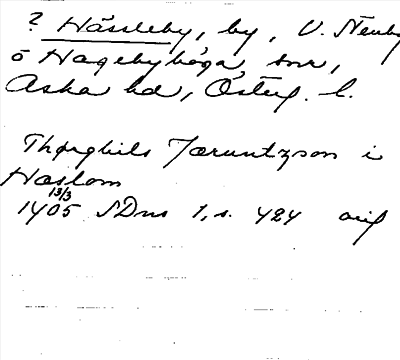 ? Hässleby, by, V. Stenby
o Hagebyhöga snr,
Aska hd, Österg. l.
Thørghils Jæruntzson i
Hæslom
13/3
1405 SDns 1, s. 424 orig